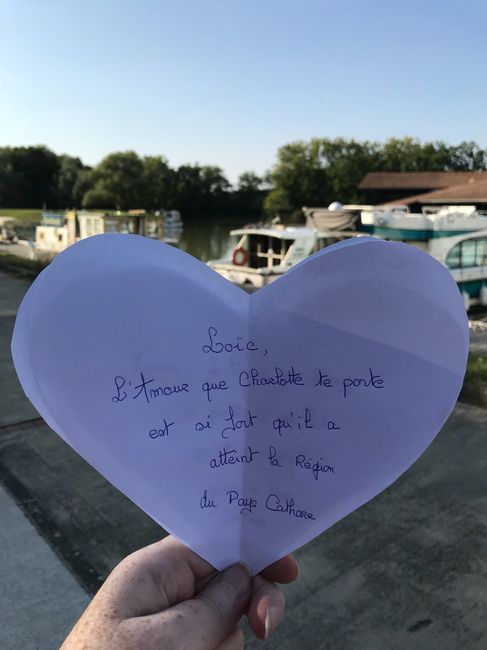 Loïc,
L'Amour que Charlotte te porte
est si fort qu'il a
atteint la Région
du Pays Cathare